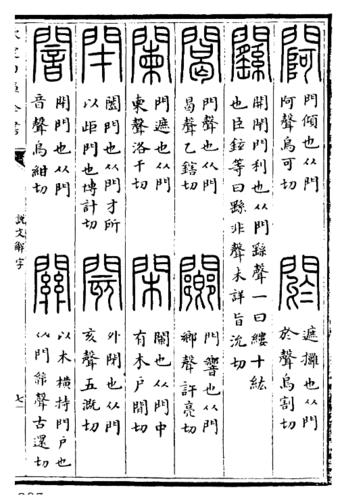 門傾也从門
阿聲烏可切
閼
遮攤也从門
於聲烏割切
開閉門利也从門繇聲一曰縷十紘
也臣鉉等曰繇非聲未詳旨沇切
門聲也从門
曷聲乙鎋切
門響也从門
鄉聲許亮切
闌
門遮也从門
柬聲洛干切
閑
闌也从門中
有木戶閒切
閉
闔門也从門才所
以歫門也博計切
閡
外閉也从門
亥聲五溉切
闇
閉門也从門
音聲烏紺切
關
以木橫持門戶也
从門𢇇聲古還切
說文解字